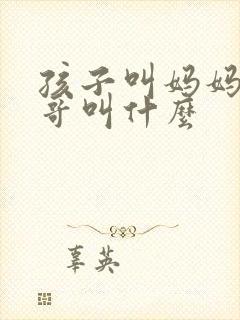 孩子叫妈妈
哥叫什麼
辜英